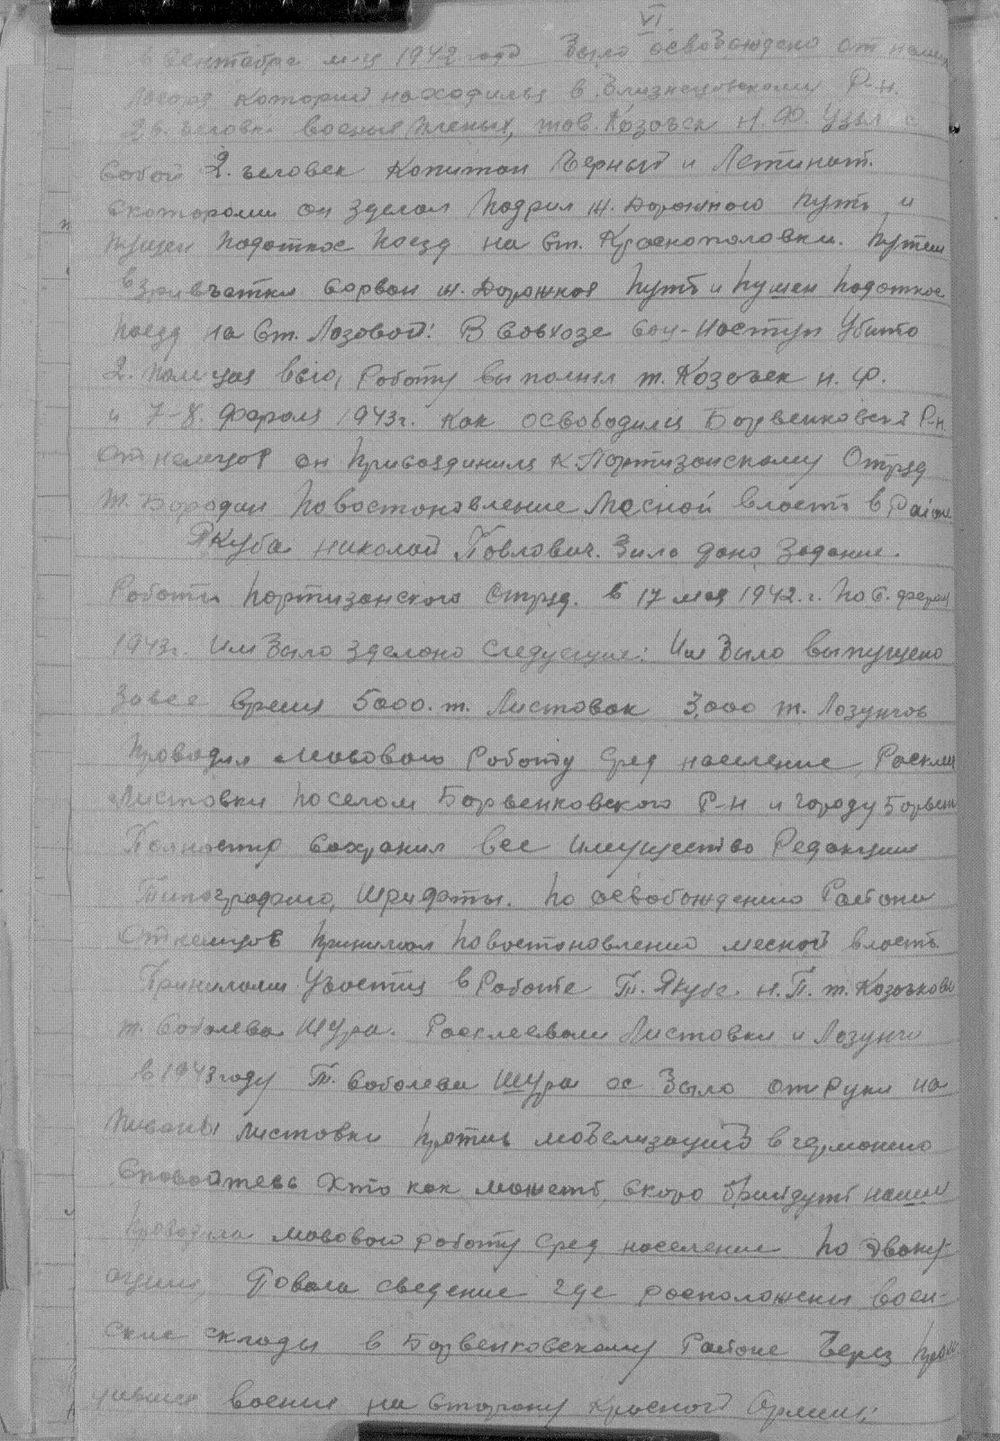 VI
в Сентябре м-ця 1942 года Было освобождено от немец
Лагоря который находился в Близнецовском Р-н.
26. человек военых пленых, тов. Козочек Н. Ф. узял с
собой 2. человек Капитан Черный и Летинат.
скоторами он зделал Подрив ж. Дорожного путь и
пущен Подоткос Поезд на ст. Краснополовки. Путем
взривчатки сорван ж. Дорожная путь и пушен подоткос
поезд на ст. Лозовой! В совхозе Соц-Наступ убито
2. Полицая всю, работу выполнял т. Козочек Н. Ф.
и 7-8. Фераля 1943г. как освободился Борвенковский Р-н.
от немецов он присоэдинился к Портизанскому Отряд
т. Бородая Повостоновление Месной власть в Район
Якуба Николай Повлович. Било дано задание.
Работы портизанского Отряд. в 17 мая 1942.г. По 6. ферал
1943г. Им Было зделано следующие: Им Было выпущено
завсе время 5000. т. Листовок 3,000 т. Лозунгов
проводил мосовою работу сред население, Росклеи
Листовки поселам Борвенковского Р-н и городу Борвен
Полностю сохранил все имущество Редакции
Типография, Шрифты. По освобождению Района
от немецов принимал повостоновлений месной власть
Принимали участия в Работе Т. Якубе. Н. П. т. Козочкова
т. Соболева Шура. Росклеевали Листовки и Лозунги
в 1943 году Т. Соболева Шура ос Было от руки на
писаны листовки против мобелизацией в германию
Сповайтесь Хто как можеть, скоро прийдуть наши
проводила мосовою работу сред население по двому
Довала сведение где росположены воен-
ские склады в Борвенковскому Районе Через
военых на сторону Красной Армии;